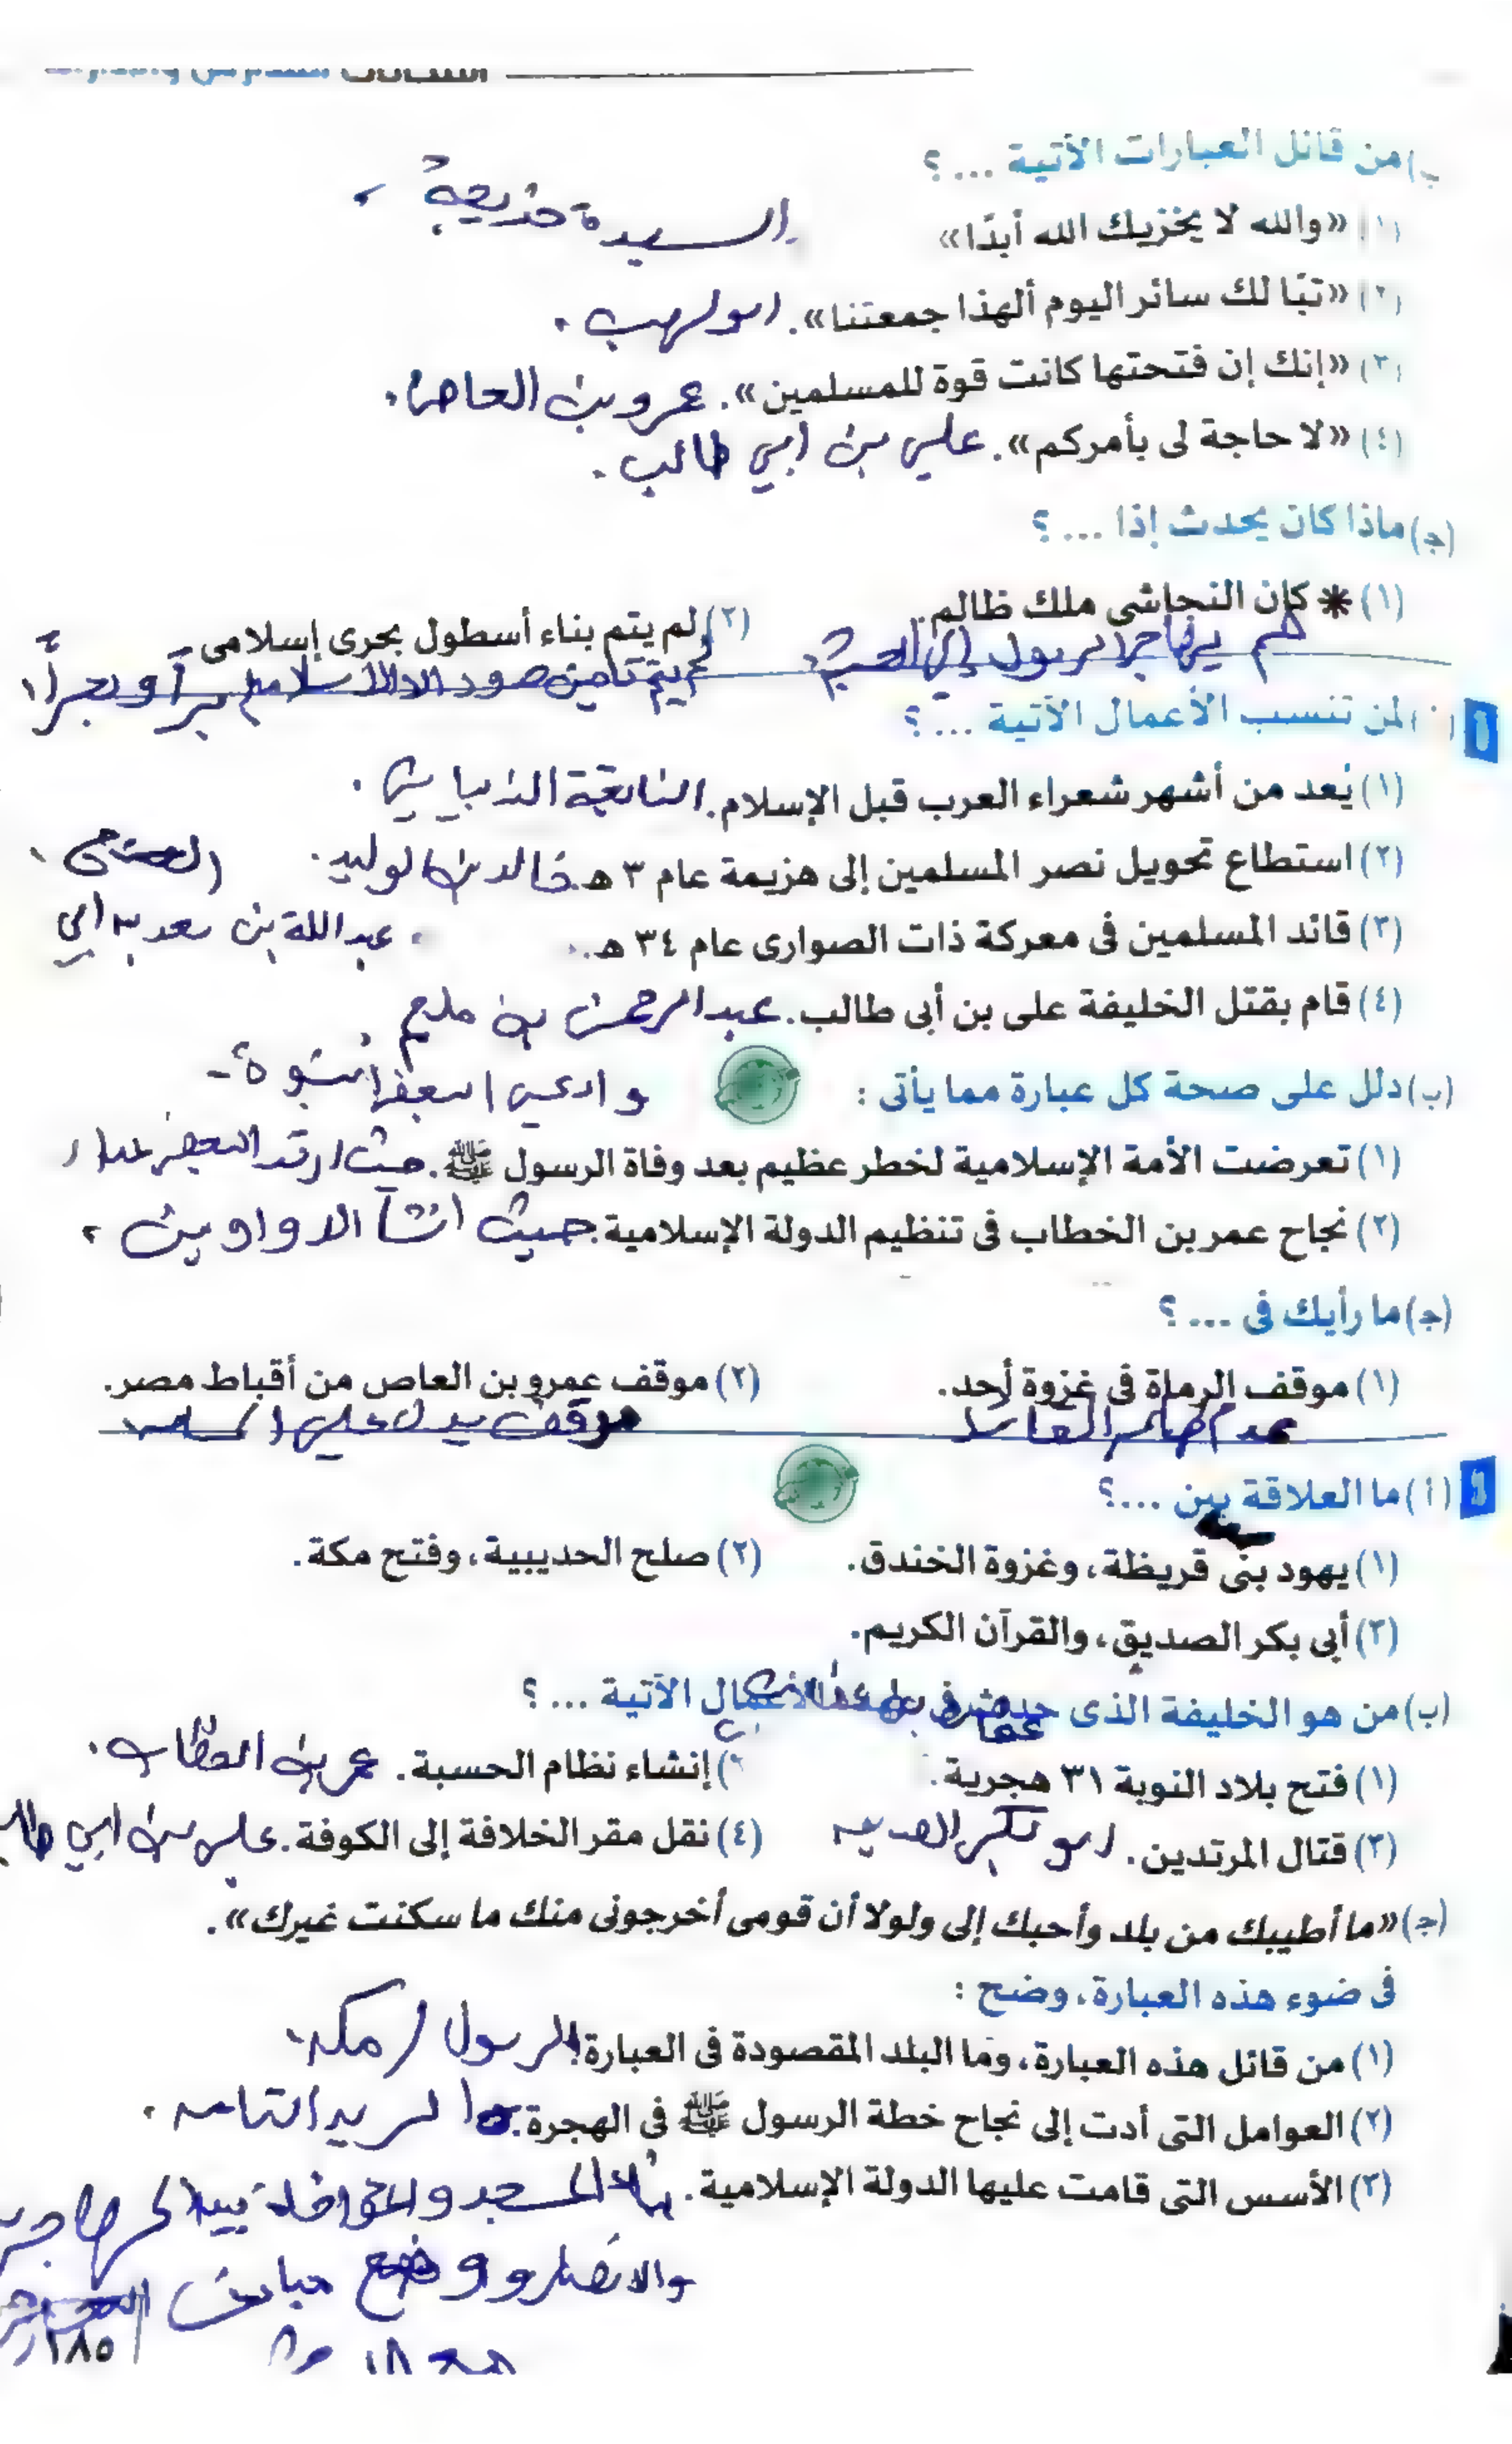 ب) من قائل العبارات الآتية ... ؟
(١) «والله لا يخزيك الله أبدًا» السيدة خديجة
(٢) «تبًا لك سائر اليوم ألهذا جمعتنا». ابو لهب .
(٣) «إنك إن فتحتها كانت قوة للمسلمين». عمرو بن العاص .
(٤) «لا حاجة لى بأمركم». علي بن ابي طالب .
(ج) ماذا كان يحدث إذا ... ؟
(١) * كان النجاشى ملك ظالم.
(٢) لم يتم بناء أسطول بحرى إسلامى.
لم يهاجر الرسول إلى الحبشة
لم يتم تأمين حدود الاسلامية برآ و بحرآ
أ) لمن تنسب الأعمال الآتية ... ؟
(١) يُعد من أشهر شعراء العرب قبل الإسلام. النابغة الذبياني .
(٢) استطاع تحويل نصر المسلمين إلى هزيمة عام ٣ هـ. خالد بن الوليد .
(٣) قائد المسلمين فى معركة ذات الصوارى عام ٣٤ هـ. عبدالله بن سعد بن ابي
(٤) قام بقتل الخليفة على بن أبى طالب. عبدالرحمن بن ملجم
(ب) دلل على صحة كل عبارة مما يأتى :
وادعى البعض النبوة
(١) تعرضت الأمة الإسلامية لخطر عظيم بعد وفاة الرسول ﷺ. حيث ارتد البعض
(٢) نجاح عمر بن الخطاب فى تنظيم الدولة الإسلامية. حيث انشأ الدواوين
(ج) ما رأيك فى ... ؟
(١) موقف الرماة فى غزوة أحد.
(٢) موقف عمرو بن العاص من أقباط مصر.
موقف يدل على
(أ) ما العلاقة بين ....؟
(١) يهود بنى قريظة، وغزوة الخندق.
(٢) صلح الحديبية، وفتح مكة.
(٣) أبى بكر الصديق، والقرآن الكريم.
(ب) من هو الخليفة الذى حدثت فى عهده الأعمال الآتية ... ؟
عثمان بن عفان
(١) فتح بلاد النوبة ٣١ هجرية.
(٢) إنشاء نظام الحسبة. عمر بن الخطاب .
(٣) قتال المرتدين. ابو بكر الصديق
(٤) نقل مقر الخلافة إلى الكوفة. علي بن ابي طالب
(ج) «ما أطيبك من بلد وأحبك إلى ولولا أن قومى أخرجونى منك ما سكنت غيرك».
فى ضوء هذه العبارة، وضح :
(١) من قائل هذه العبارة، وما البلد المقصودة فى العبارة؟ الرسول / مكة
(٢) العوامل التى أدت إلى نجاح خطة الرسول ﷺ فى الهجرة.
(٣) الأسس التى قامت عليها الدولة الإسلامية. بناء المسجد والمؤاخاة بين المهاجرين
والانصار و وضع
١٨٥